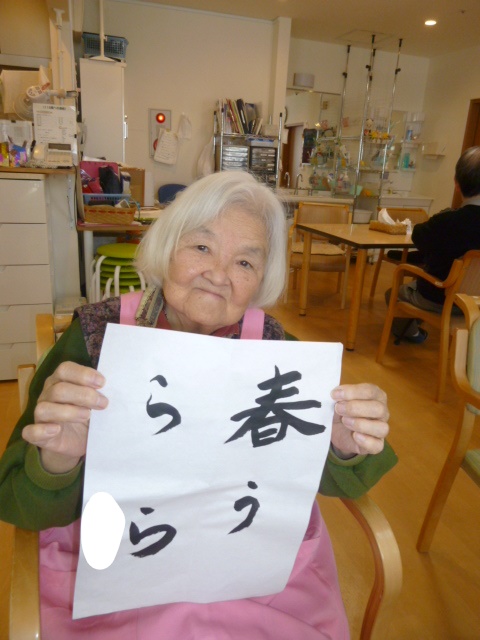 春う
らら